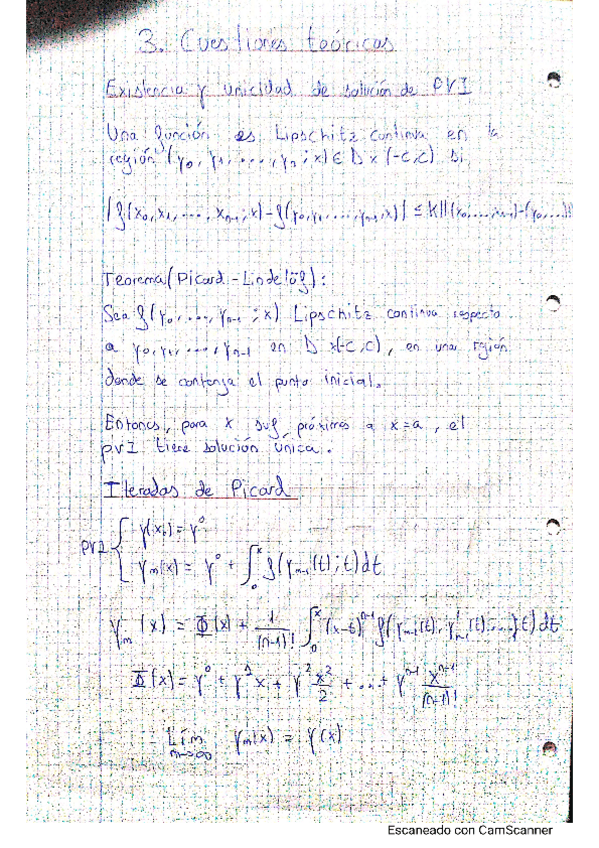 3. Cuestiones teóricas
Existencia y unicidad de solución de PVI
Una función es Lipschitz continua en la
región (y₀, y₁, ..., yₙ; x) ∈ D x (-c, c) si
|f(x₀, x₁, ..., xₙ₋₁; x) - f(y₀, y₁, ..., yₙ₋₁, x)| ≤ K||(x₀, ..., xₙ₋₁) - (y₀, ...)||
Teorema (Picard - Lindelöf):
Sea f(y₀, ..., yₙ₋₁; x) Lipschitz continua respecto
a y₀, y₁, ..., yₙ₋₁ en D x(-c, c), en una región
donde se contenga el punto inicial.
Entonces, para x suf. próximos a x=a, el
PVI tiene solución única.
Iteradas de Picard
PVI { y(x₀) = y⁰
yₘ(x) = y⁰ + ∫₀ˣ f(yₘ₋₁(t); t) dt
yₘ(x) = Φ(x) + 1/(n-1)! ∫₀ˣ (x-t)ⁿ⁻¹ f(yₘ₋₁(t), y'ₘ₋₁(t), ...; t) dt
Φ(x) = y⁰ + y¹x + y² x²/2 + ... + yⁿ⁻¹ xⁿ⁻¹/(n-1)!
Lím m→∞ yₘ(x) = y(x)
Escaneado con CamScanner